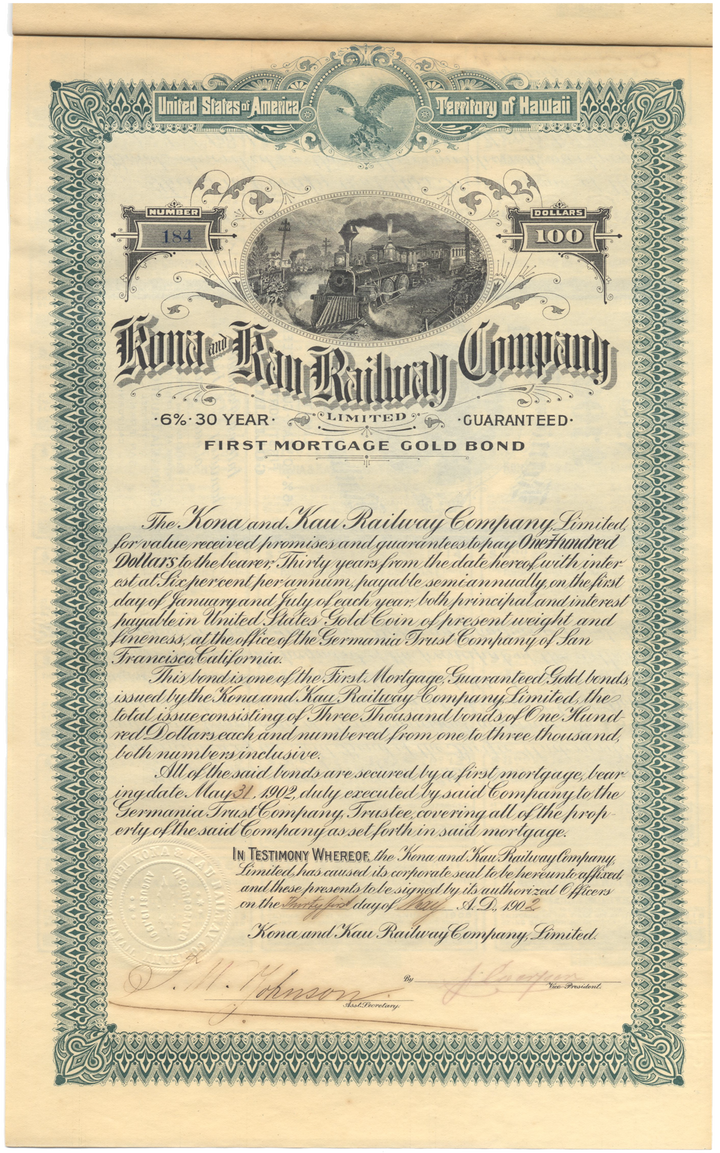 United States of America Territory of Hawaii
NUMBER
184
DOLLARS
100
Kona and Kau Railway Company
LIMITED
·6%·30 YEAR· ·GUARANTEED·
FIRST MORTGAGE GOLD BOND
The Kona and Kau Railway Company, Limited,
for value received promises and guarantees to pay One Hundred
Dollars to the bearer, Thirty years from the date hereof with inter
est at Six per cent per annum, payable semiannually, on the first
day of January and July of each year, both principal and interest
payable in United States Gold Coin of present weight and
fineness, at the office of the Germania Trust Company of San
Francisco, California.
This bond is one of the First Mortgage, Guaranteed Gold bonds,
issued by the Kona and Kau Railway Company, Limited, the
total issue consisting of Three Thousand bonds of One Hund-
red Dollars each and numbered from one to three thousand,
both numbers inclusive.
All of the said bonds are secured by a first mortgage, bear-
ing date May 31 1902, duly executed by said Company to the
Germania Trust Company, Trustee, covering all of the prop-
erty of the said Company as set forth in said mortgage.
IN TESTIMONY WHEREOF, the Kona and Kau Railway Company,
Limited, has caused its corporate seal to be hereunto affixed
and these presents to be signed by its authorized Officers
on the Thirty first day of May A.D., 1902
Kona and Kau Railway Company, Limited.
F. W. Johnson
Asst. Secretary.
By
Vice-President.